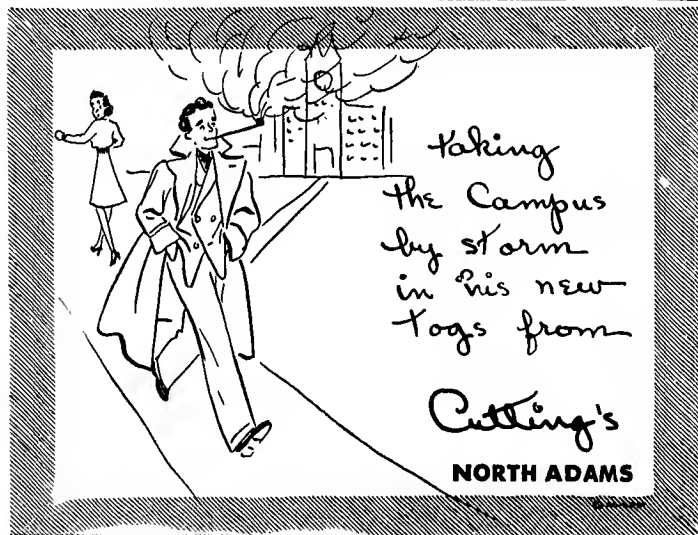 taking
the Campus
by storm
in his new
togs from
Cutting's
NORTH ADAMS